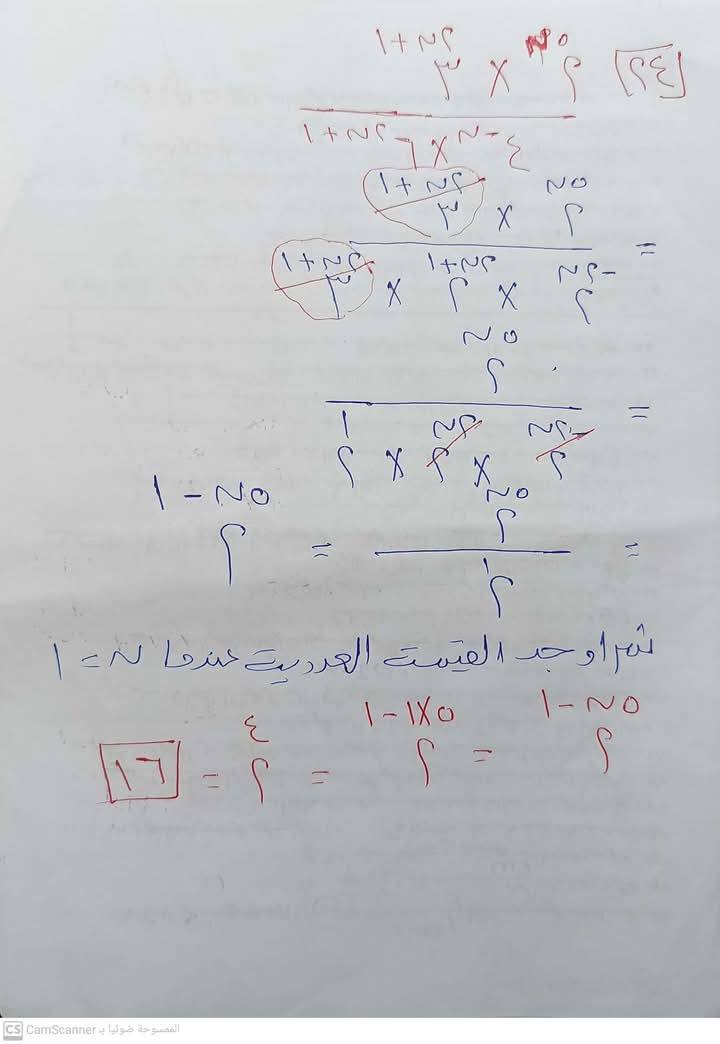 [٢٤] ٢^٥ن × ٣^٢ن+١
٤^-ن × ٦^٢ن+١
= ٢^٥ن × ٣^٢ن+١
٢^-٢ن × ٢^٢ن+١ × ٣^٢ن+١
= ٢^٥ن
٢^-٢ن × ٢^٢ن × ٢^١
= ٢^٥ن / ٢^١ = ٢^٥ن-١
ثم اوجد القيمة العددية عندما ن = ١
٢^٥ن-١ = ٢^٥×١-١ = ٢^٤ = ١٦
CS CamScanner الممسوحة ضوئيا بـ